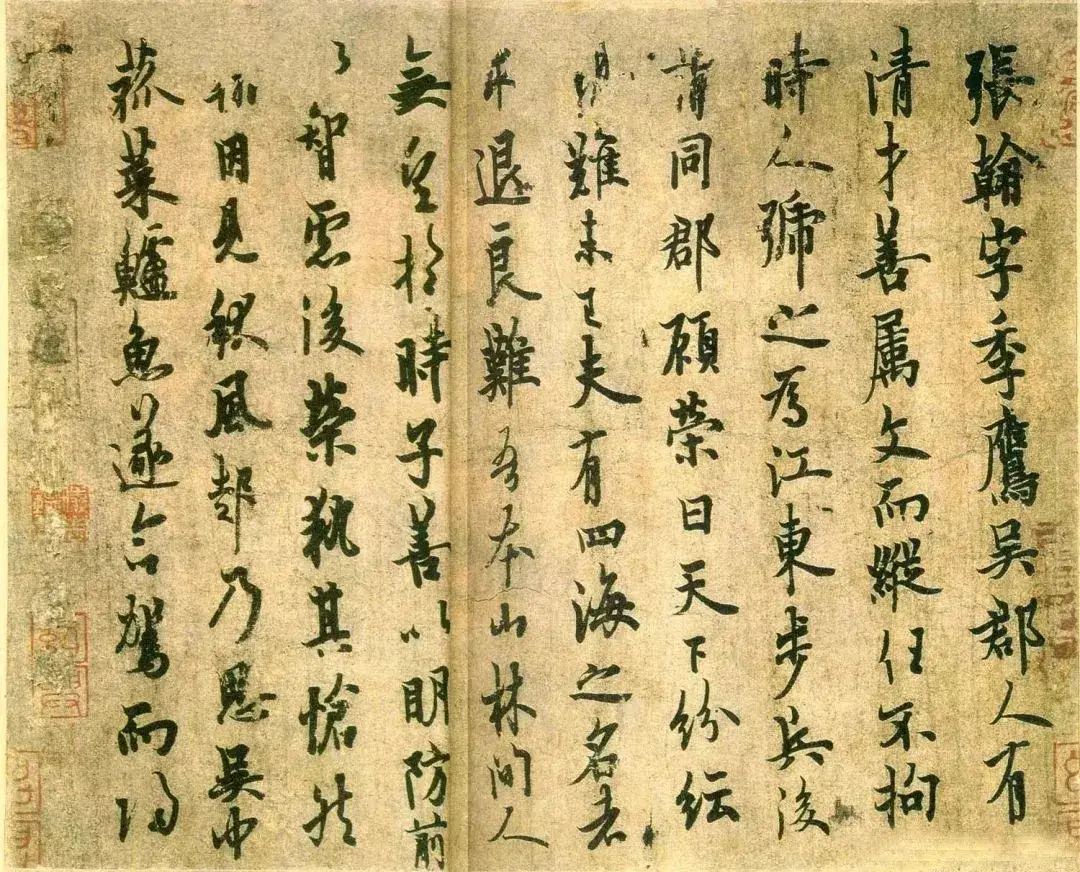 張翰字季鷹吳郡人有
清才善屬文而縱任不拘
時人號之為江東步兵後
謂同郡顧榮曰天下紛紜
禍難未已夫有四海之名者
求退良難吾本山林間人
無望於時子善以明防前
以智慮後榮執其愴然
因見秋風起乃思吳中
菰菜鱸魚遂命駕而歸